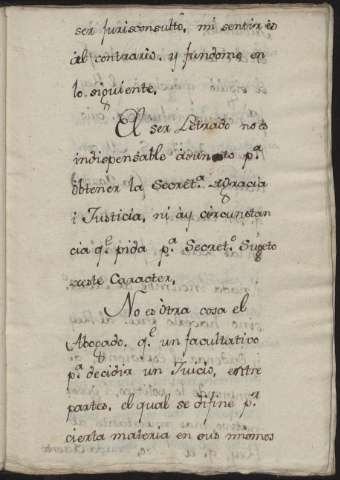 ser Jurisconsulto, mi sentir es
al contrario, y fundome en
lo siguiente.
El ser Letrado no es
indispensable asunto p.ª
obtener la Secret.ª de Gracia
i Justicia, ni ay circunstan
cia q.e pida p.ª Secret.º Sugeto
de este Caracter.
No es otra cosa el
Abogado, q.e un facultativo
p.ª decidir un Juicio, entre
partes, el qual se difine p.r
cierta materia en sus mismos